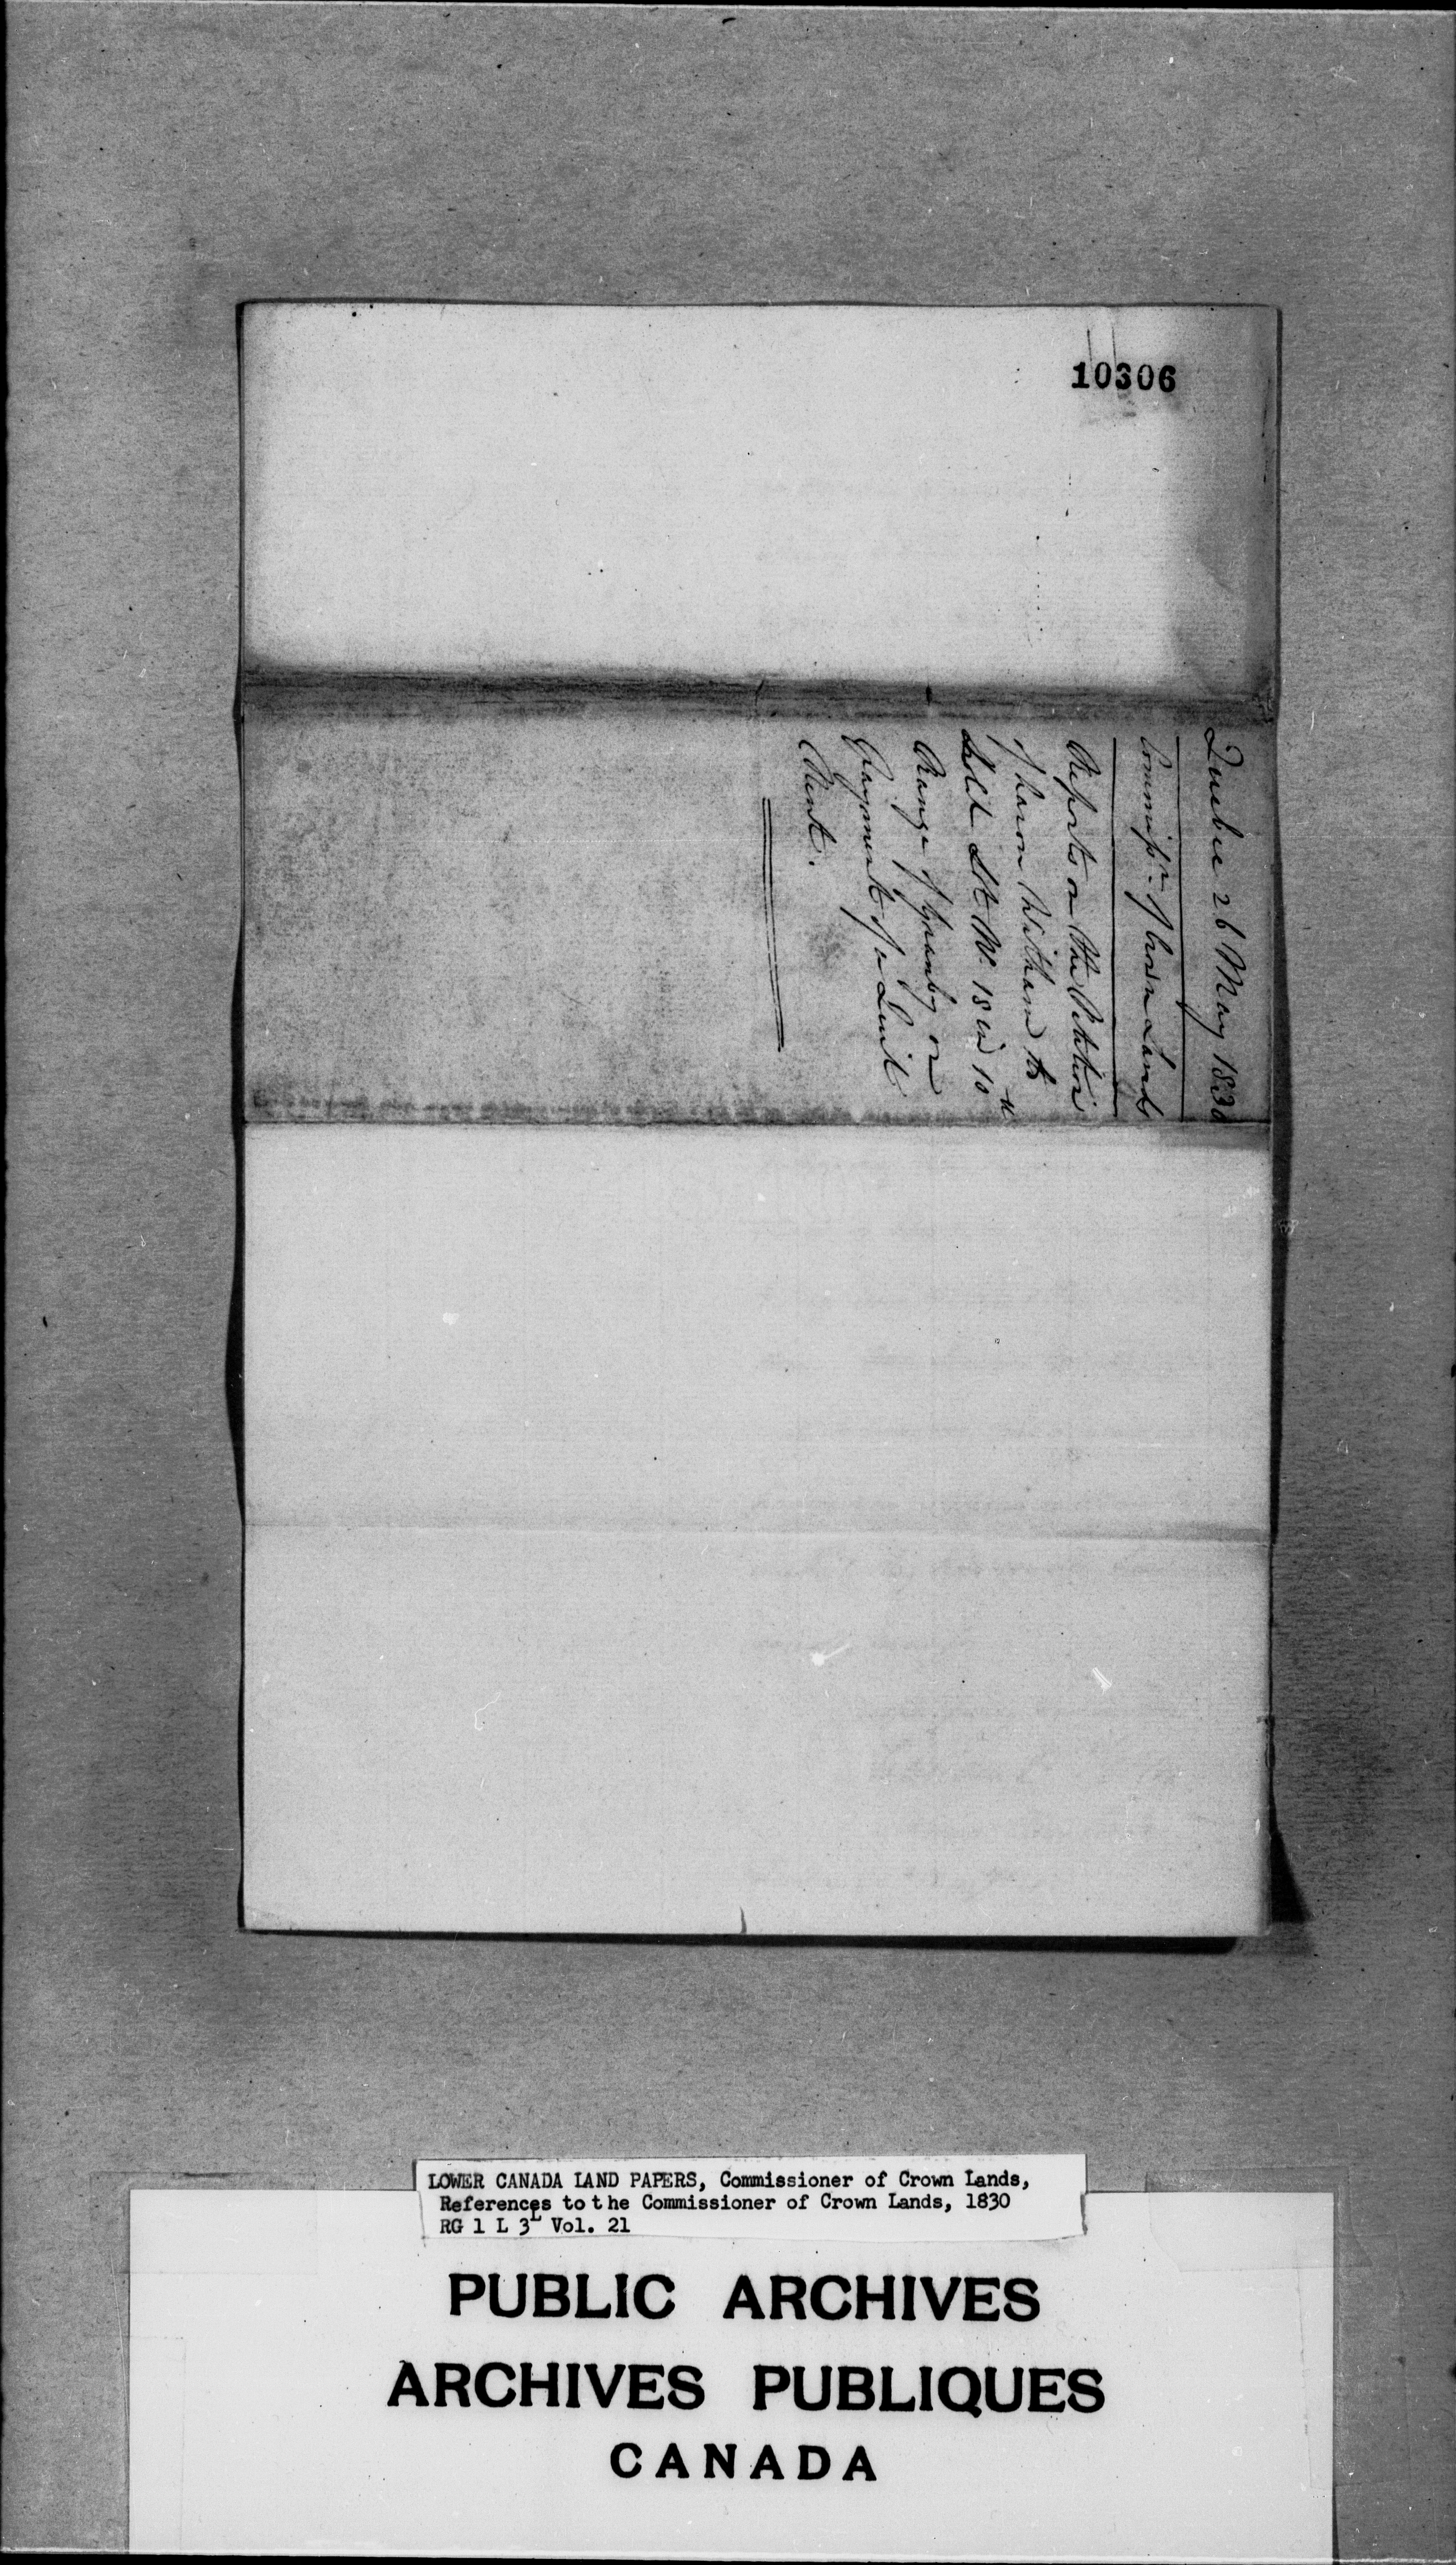 10306
Quebec 26 May 1830
Commissr. of Crown Lands
Reports on the Petition
of Witham to
hold Lot No. 18 in 10th
Range of Granby on
Payment of a Quit
Rent.
LOWER CANADA LAND PAPERS, Commissioner of Crown Lands,
References to the Commissioner of Crown Lands, 1830
RG 1 L 3L Vol. 21
PUBLIC ARCHIVES
ARCHIVES PUBLIQUES
CANADA